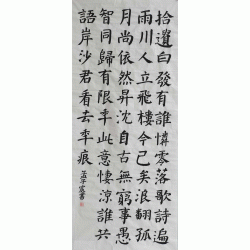 拾遺白髮有誰憐零落歌詩遍
雨川人立飛樓今已矣浪翻孤
月尚依然昇沈自古無窮事愚
智同歸有限年此意悽涼誰共
語岸沙君看去年痕